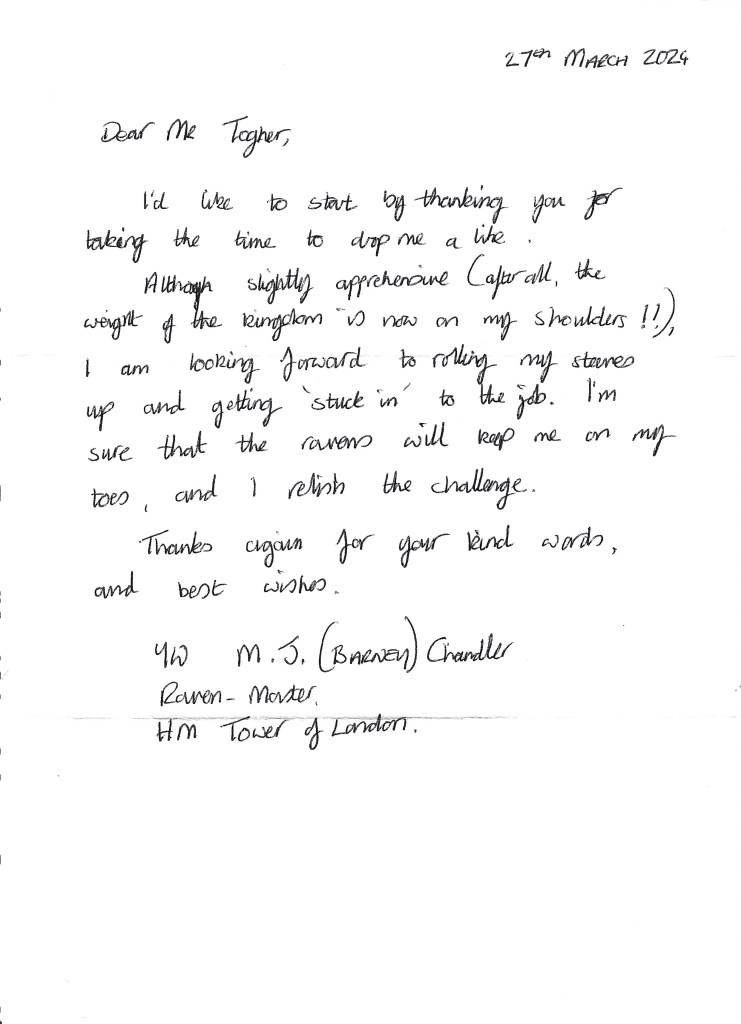 27th MARCH 2024
Dear Mr Togher,
I'd like to start by thanking you for
taking the time to drop me a line.
Although slightly apprehensive (after all, the
weight of the kingdom is now on my shoulders!!),
I am looking forward to rolling my sleeves
up and getting 'stuck in' to the job. I'm
sure that the ravens will keep me on my
toes, and I relish the challenge.
Thanks again for your kind words,
and best wishes.
YW M.J. (BARNEY) Chandler
Raven-Master.
HM Tower of London.